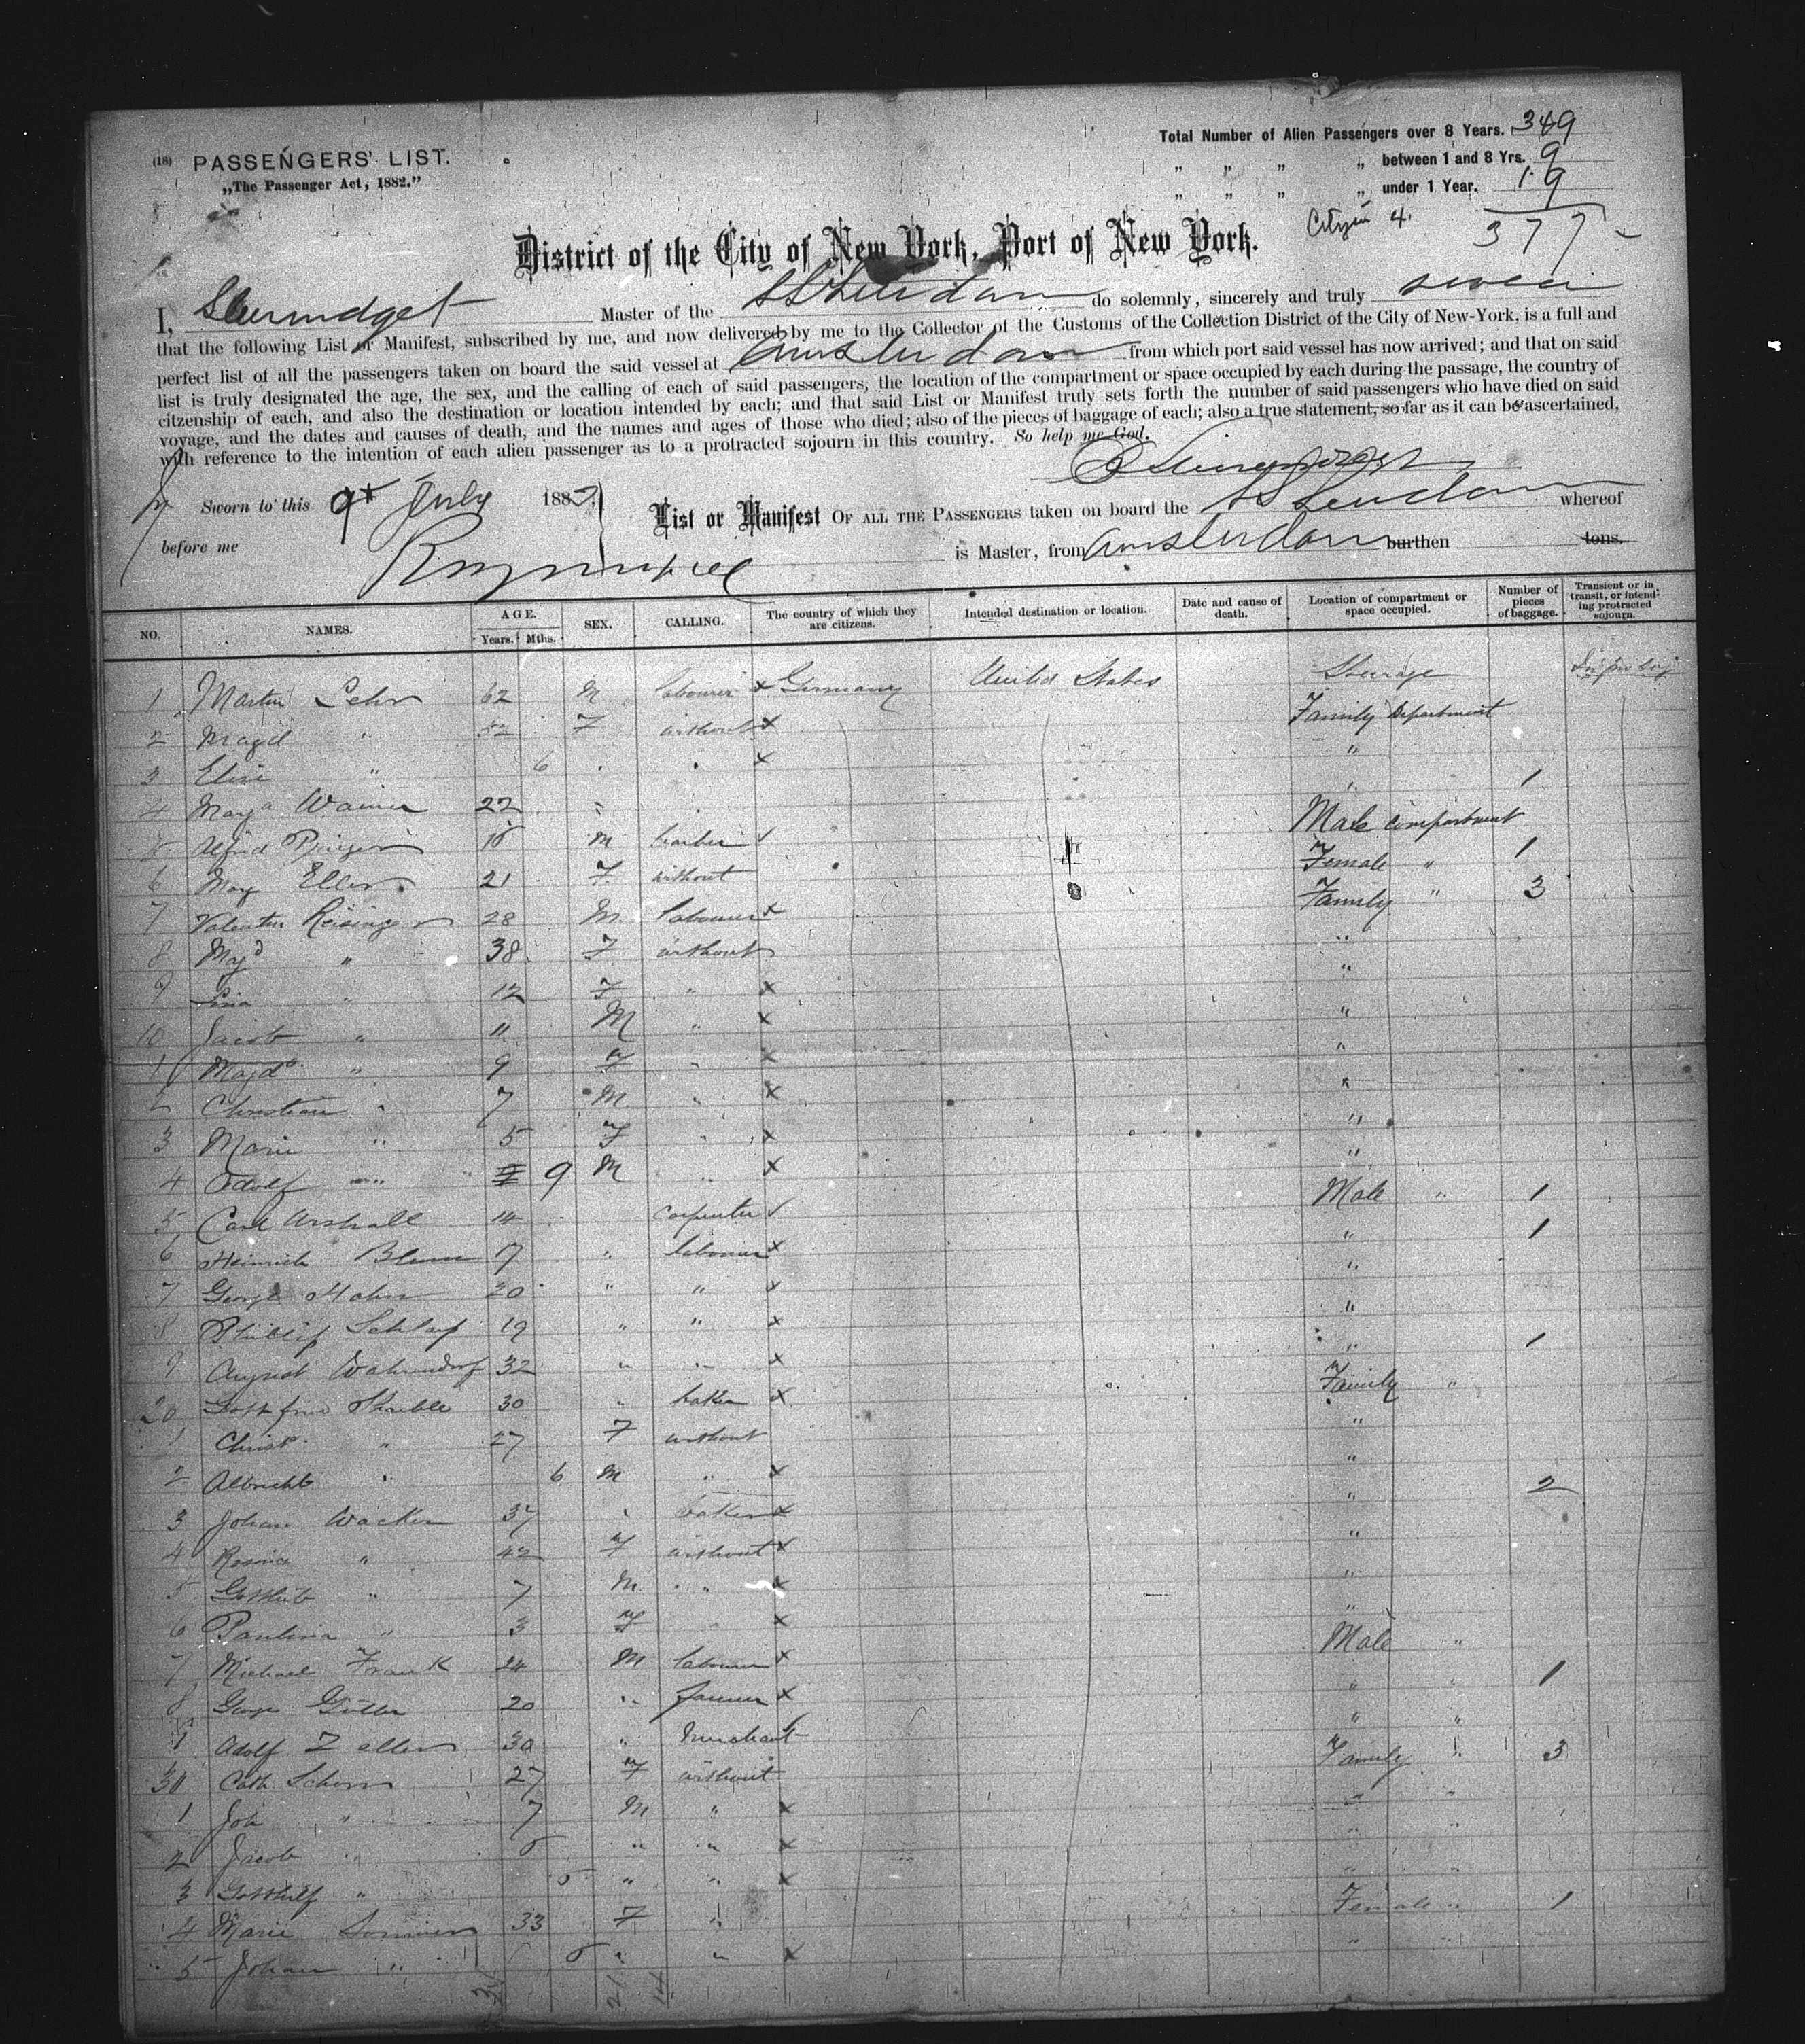 (18) PASSENGERS' LIST.
„The Passenger Act, 1882."
Total Number of Alien Passengers over 8 Years. 349
„ „ „ „ between 1 and 8 Yrs. 9
„ „ „ „ under 1 Year. 19
Citizen 4. 377
District of the City of New York, Port of New York.
I, Master of the do solemnly, sincerely and truly swear
that the following List or Manifest, subscribed by me, and now delivered by me to the Collector of the Customs of the Collection District of the City of New-York, is a full and
perfect list of all the passengers taken on board the said vessel at Amsterdam from which port said vessel has now arrived; and that on said
list is truly designated the age, the sex, and the calling of each of said passengers, the location of the compartment or space occupied by each during the passage, the country of
citzenship of each, and also the destination or location intended by each; and that said List or Manifest truly sets forth the number of said passengers who have died on said
voyage, and the dates and causes of death, and the names and ages of those who died; also of the pieces of baggage of each; also a true statement, so far as it can be ascertained,
with reference to the intention of each alien passenger as to a protracted sojourn in this country. So help me God.
Sworn to this 9th July 188
before me
List or Manifest OF ALL THE PASSENGERS taken on board the whereof
is Master, from Amsterdam burthen tons.
NO. NAMES. AGE. Years. Mths. SEX. CALLING. The country of which they are citizens. Intended destination or location. Date and cause of death. Location of compartment or space occupied. Number of pieces of baggage. Transient or in transit, or intending protracted sojourn.
1 Martin Lehr 62 M labourer x Germany United States Steerage
2 Magd " 52 F without x Family Department
3 Elise " 6 x "
4 22 " 1
5 Alfred M Male compartment
6 May Eller 21 F without Female " 1
7 Valentin Reisinger 28 M labourer x Family " 3
8 Magd " 38 F without "
9 Lina " 12 F " x "
10 Jacob " 11 M " x "
1 Magd " 9 F x "
2 Christian " 7 M " x "
3 Marie " 5 F x "
4 Adolf " 9 M " x "
5 Carl 14 carpenter Male " 1
6 Heinrich Blum 17 " labourer x " 1
7 George Hahn 20 " " x "
8 Phillip Schlaf 19 " " x "
9 August Wahrendorf 32 " x " 1
20 30 baker x Family "
1 Christ. " 27 F without "
2 Albrecht " 6 M " x "
3 Johan Wacker 37 baker x " 2
4 Rosina " 42 F without x "
5 Gottlieb " 7 M " x "
6 Paulina " 3 F x "
7 Michael Frank 24 M labourer x Male "
8 George 20 farmer x " 1
9 Adolf Zeller 30 " merchant " "
30 Cath Schorr 27 F without Family " 3
1 Joh " 7 M " x " "
2 Jacob " 5 " " x " "
3 Gotthilf " 5 " " x " "
4 Marie Sommer 33 F " Female " 1
5 Johan " 5 " " x "